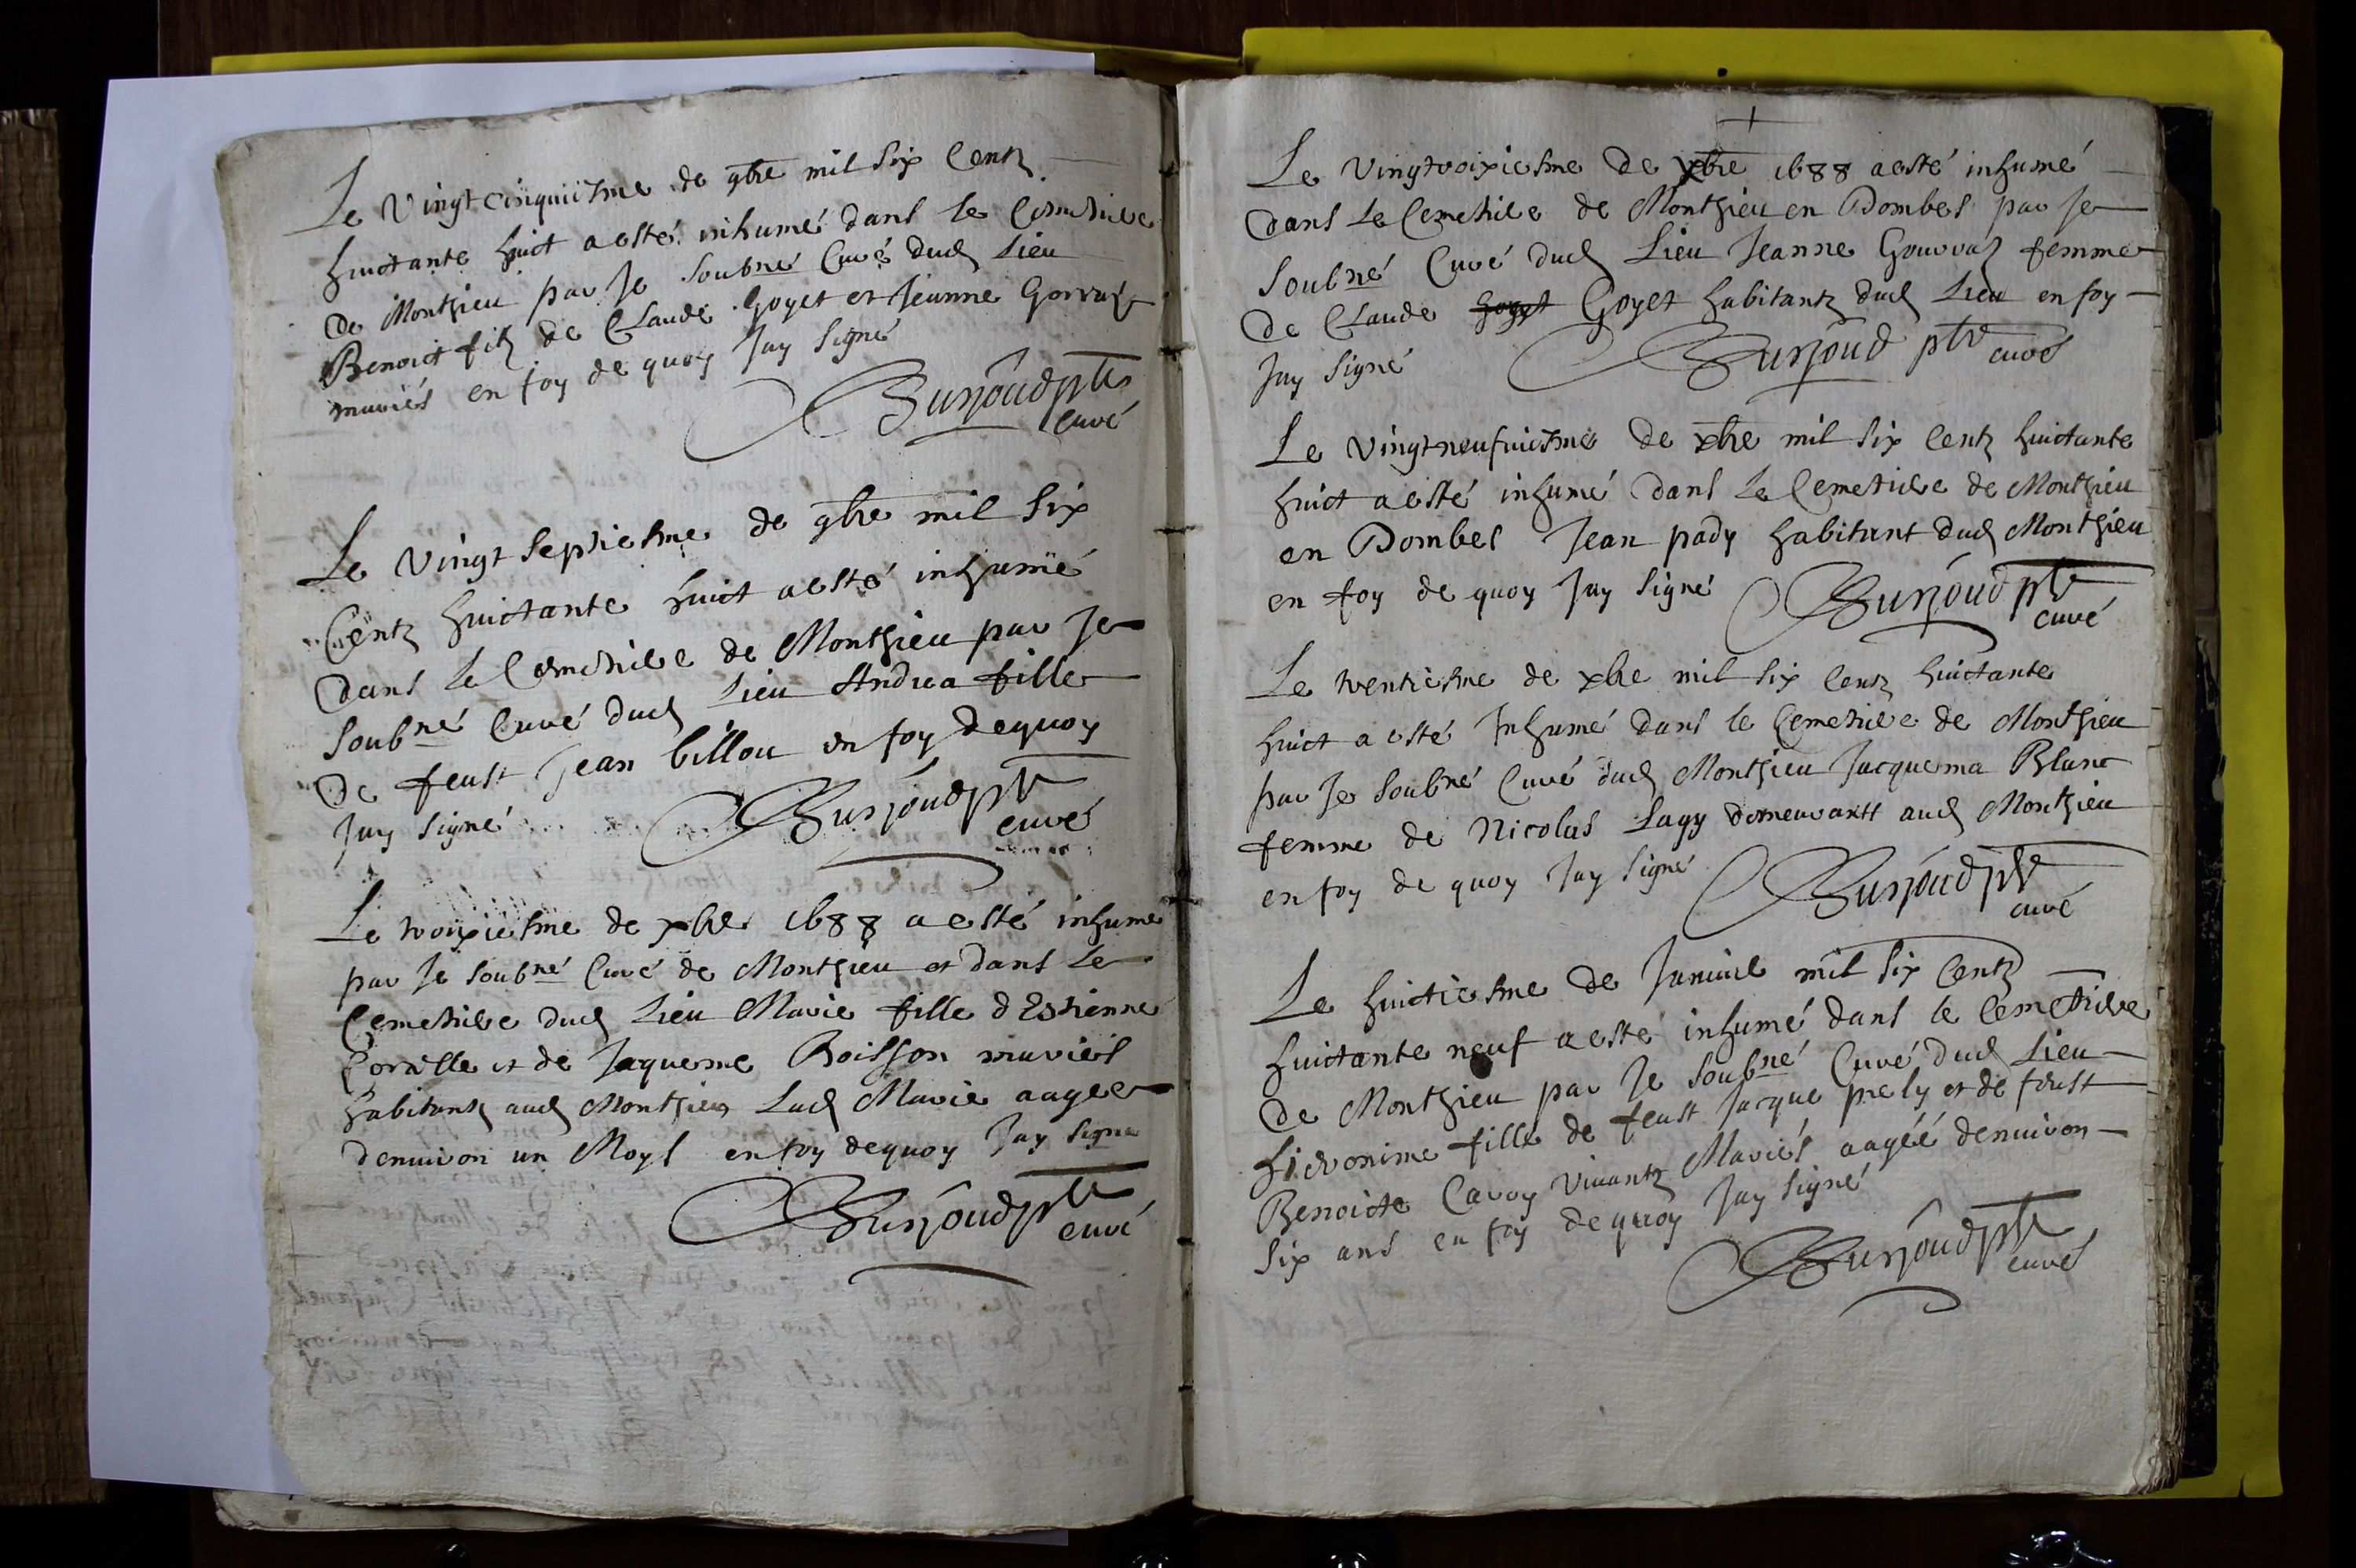 Le vingt cinquiesme de 9bre mil six centz
huictante huict a esté inhumé dans le cemetiere
de Monthieu par Je soubné Curé dud Lieu
Benoict filz de Claude Goyet et Jeanne Gorrat
mariés en foy de quoy Jay signé
Burjoud ptre
curé
Le vingt septiesme de 9bre mil six
Centz huictante huict a esté inhumé
dans le Cemetiere de Monthieu par Je
soubné Curé dud Lieu Andrea fille
de feust Jean billou en foy dequoy
Jay signé Burjoud ptr
curé
Le troixiesme de xbre 1688 a esté inhumé
par Je soubné Curé de Monthieu et dans Le
Cemetiere dud Lieu Marie fille d Estienne
et de Jaqueme Boisson mariés
habitantz aud Monthieu Lad Marie aagee
denuiron un Moys en foy dequoy Jay signé
Burjoud ptr
curé
Le vingtroixiesme de xbre 1688 a esté inhumé
dans Le Cemetiere de Monthieu en Dombes par Je
soubné Curé dud Lieu Jeanne Gourrat femme
de Claude Goyet Goyet habitantz dud Lieu en foy
Jay signé Burjoud ptr curé
Le vingtneufuiesme de xbre mil six centz huictante
huict a esté inhumé dans Le Cemetiere de Monthieu
en Dombes Jean pady habitant dud Monthieu
en foy de quoy Jay signé Burjoud ptr
curé
Le trentiesme de xbre mil six centz huictante
huict a esté Inhumé dans le Cemetiere de Monthieu
par Je soubné Curé dud Monthieu Jacquema Blanc
femme de Nicolas Lagy demeurantt aud Monthieu
en foy de quoy Jay signé Burjoud ptr
curé
Le huictiesme de Januier mil six centz
huictante neuf a esté inhumé dans le cemetiere
de Monthieu par Je soubné Curé dud Lieu
hieronime fille de feust Jacque prely et de feust
Benoicte Caroy viuantz Mariés aagéé denuiron
six ans en foy de quoy Jay signé
Burjoud ptr
curé